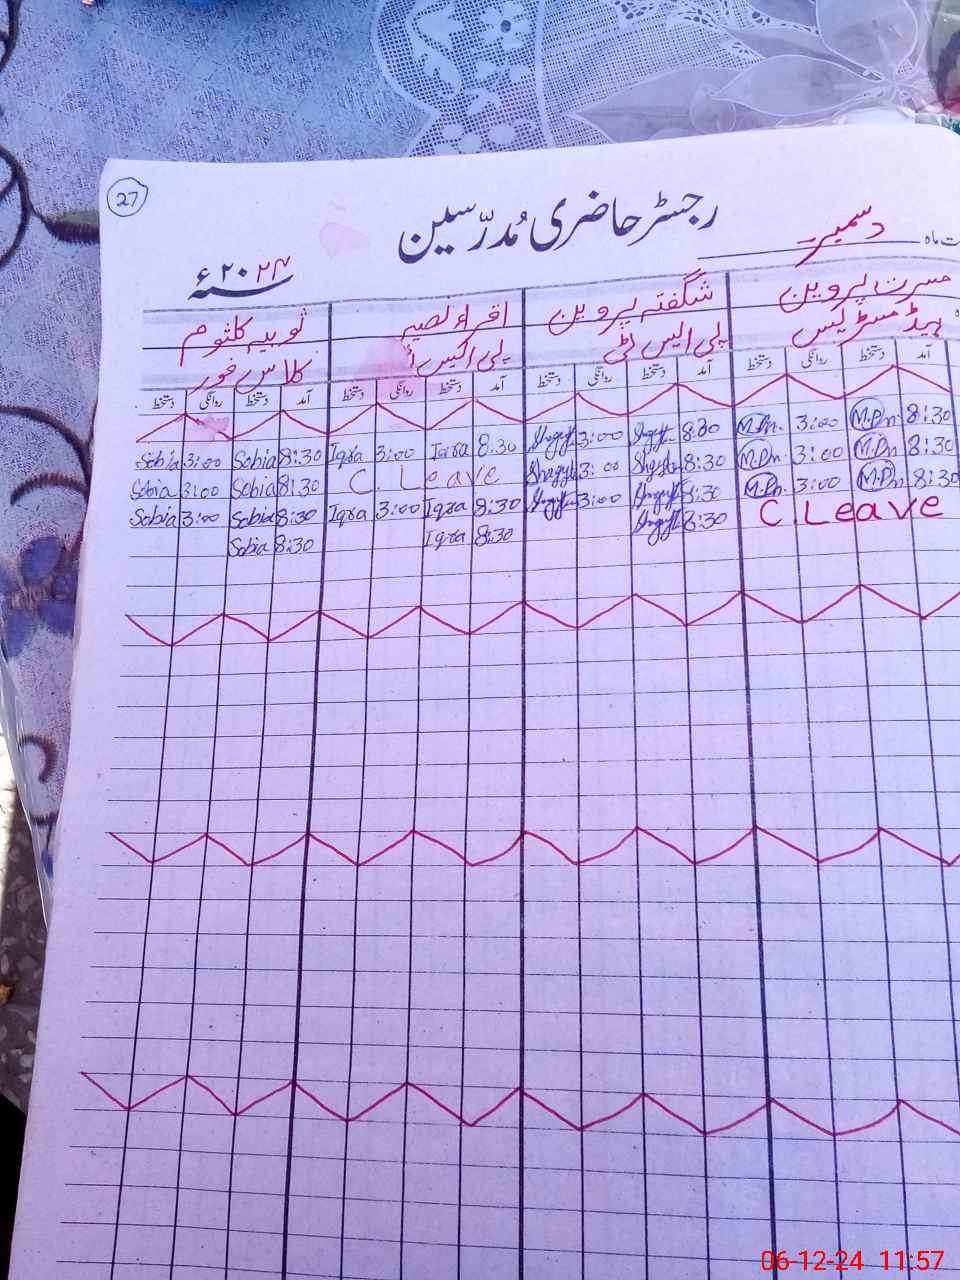 27
رجسٹر حاضری مُدرّسین
ت ماہ دسمبر
سنہ ۲۰۲۴ء
مسرت پروین شگفتہ پروین اقراء نصیر ثوبیہ کلثوم
ہیڈ مسٹریس پی ایس ٹی پی ایس ٹی کلاس فور
آمد دستخط روانگی دستخط آمد دستخط روانگی دستخط آمد دستخط روانگی دستخط آمد دستخط روانگی دستخط
Sobia 3:00 Sobia 8:30 Iqra 3:00 Iqra 8:30 Shagufta 3:00 Shagufta 8:30 M.Pn. 3:00 M.Pn. 8:30
Sobia 3:00 Sobia 8:30 C. Leave Shagufta 3:00 Shagufta 8:30 M.Pn. 3:00 M.Pn. 8:30
Sobia 3:00 Sobia 8:30 Iqra 3:00 Iqra 8:30 Shagufta 3:00 Shagufta 8:30 M.Pn. 3:00 M.Pn. 8:30
Sobia 8:30 Iqra 8:30 Shagufta 8:30 C Leave
06-12-24 11:57